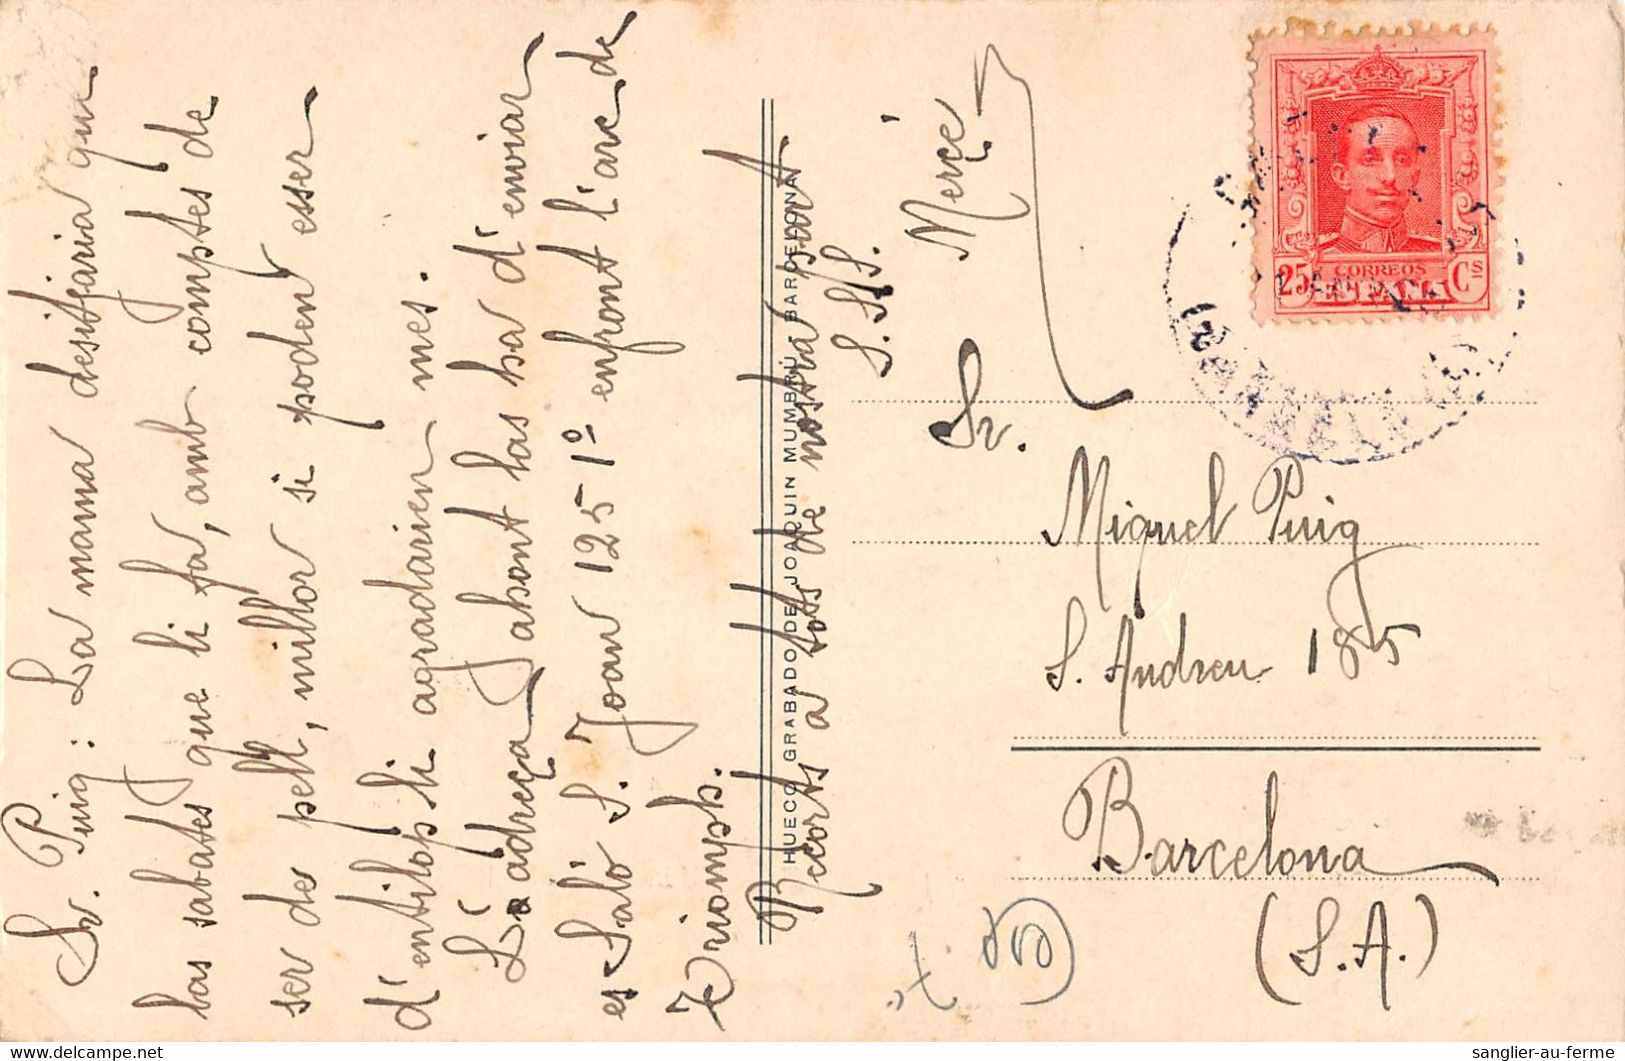 Sr. Puig: La mama desitjaria que
las sabates que li fa, amb comptes de
ser de pell, millor si podent esser
d'entilop li agradarien mes.
La adreça ahont las ha d'enviar
es Saló S. Joan 125 1º enfront l'arc de
Triomph.
Recorts a tots de nostra part
S. S. S.
Mercé
HUECOGRABADO DE JOAQUIN MUMBRÚ BARCELONA
CORREOS
25 ESPAÑA Cs
Sr.
Miquel Puig
S. Andreu 185
Barcelona
(S. A.)
sanglier-au-ferme